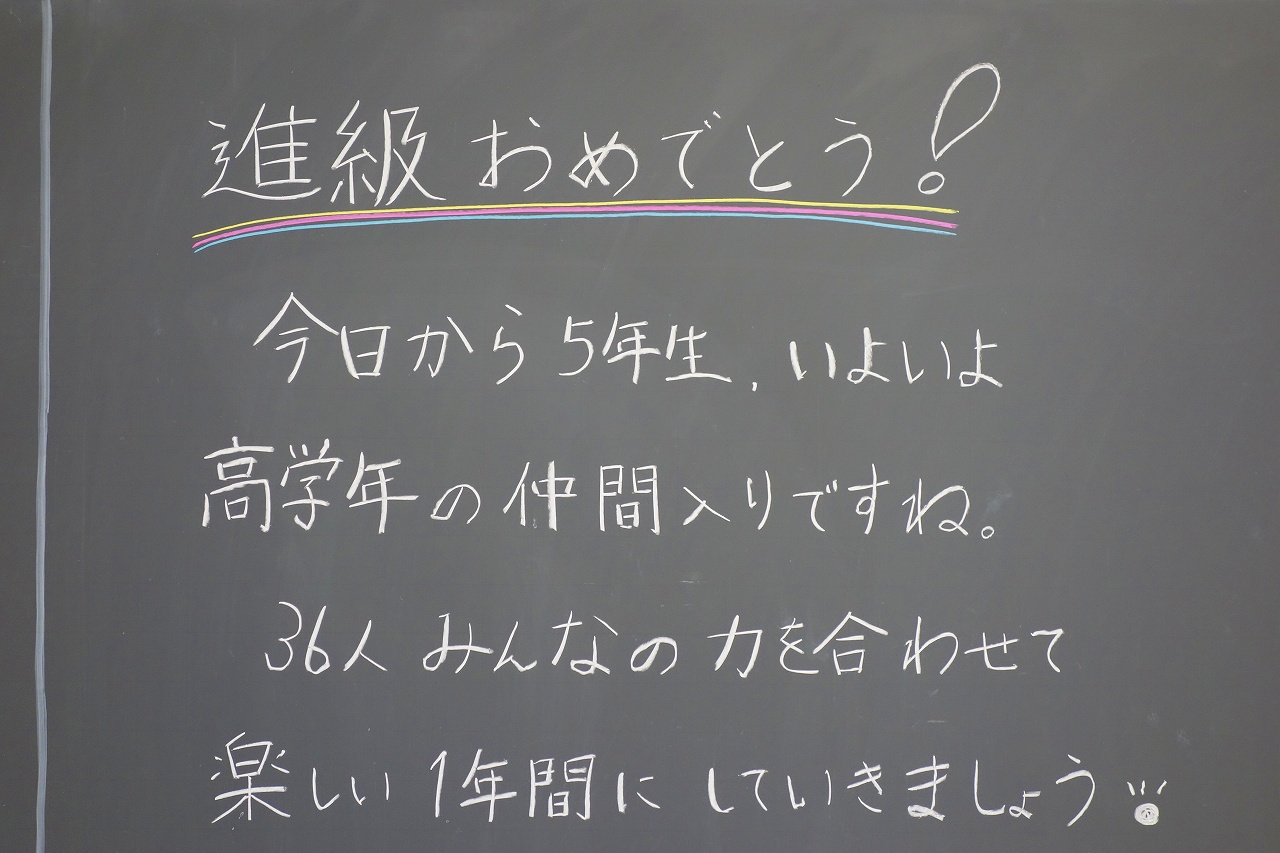 進級おめでとう!
今日から5年生、いよいよ
高学年の仲間入りですね。
36人みんなの力を合わせて
楽しい1年間にしていきましょう